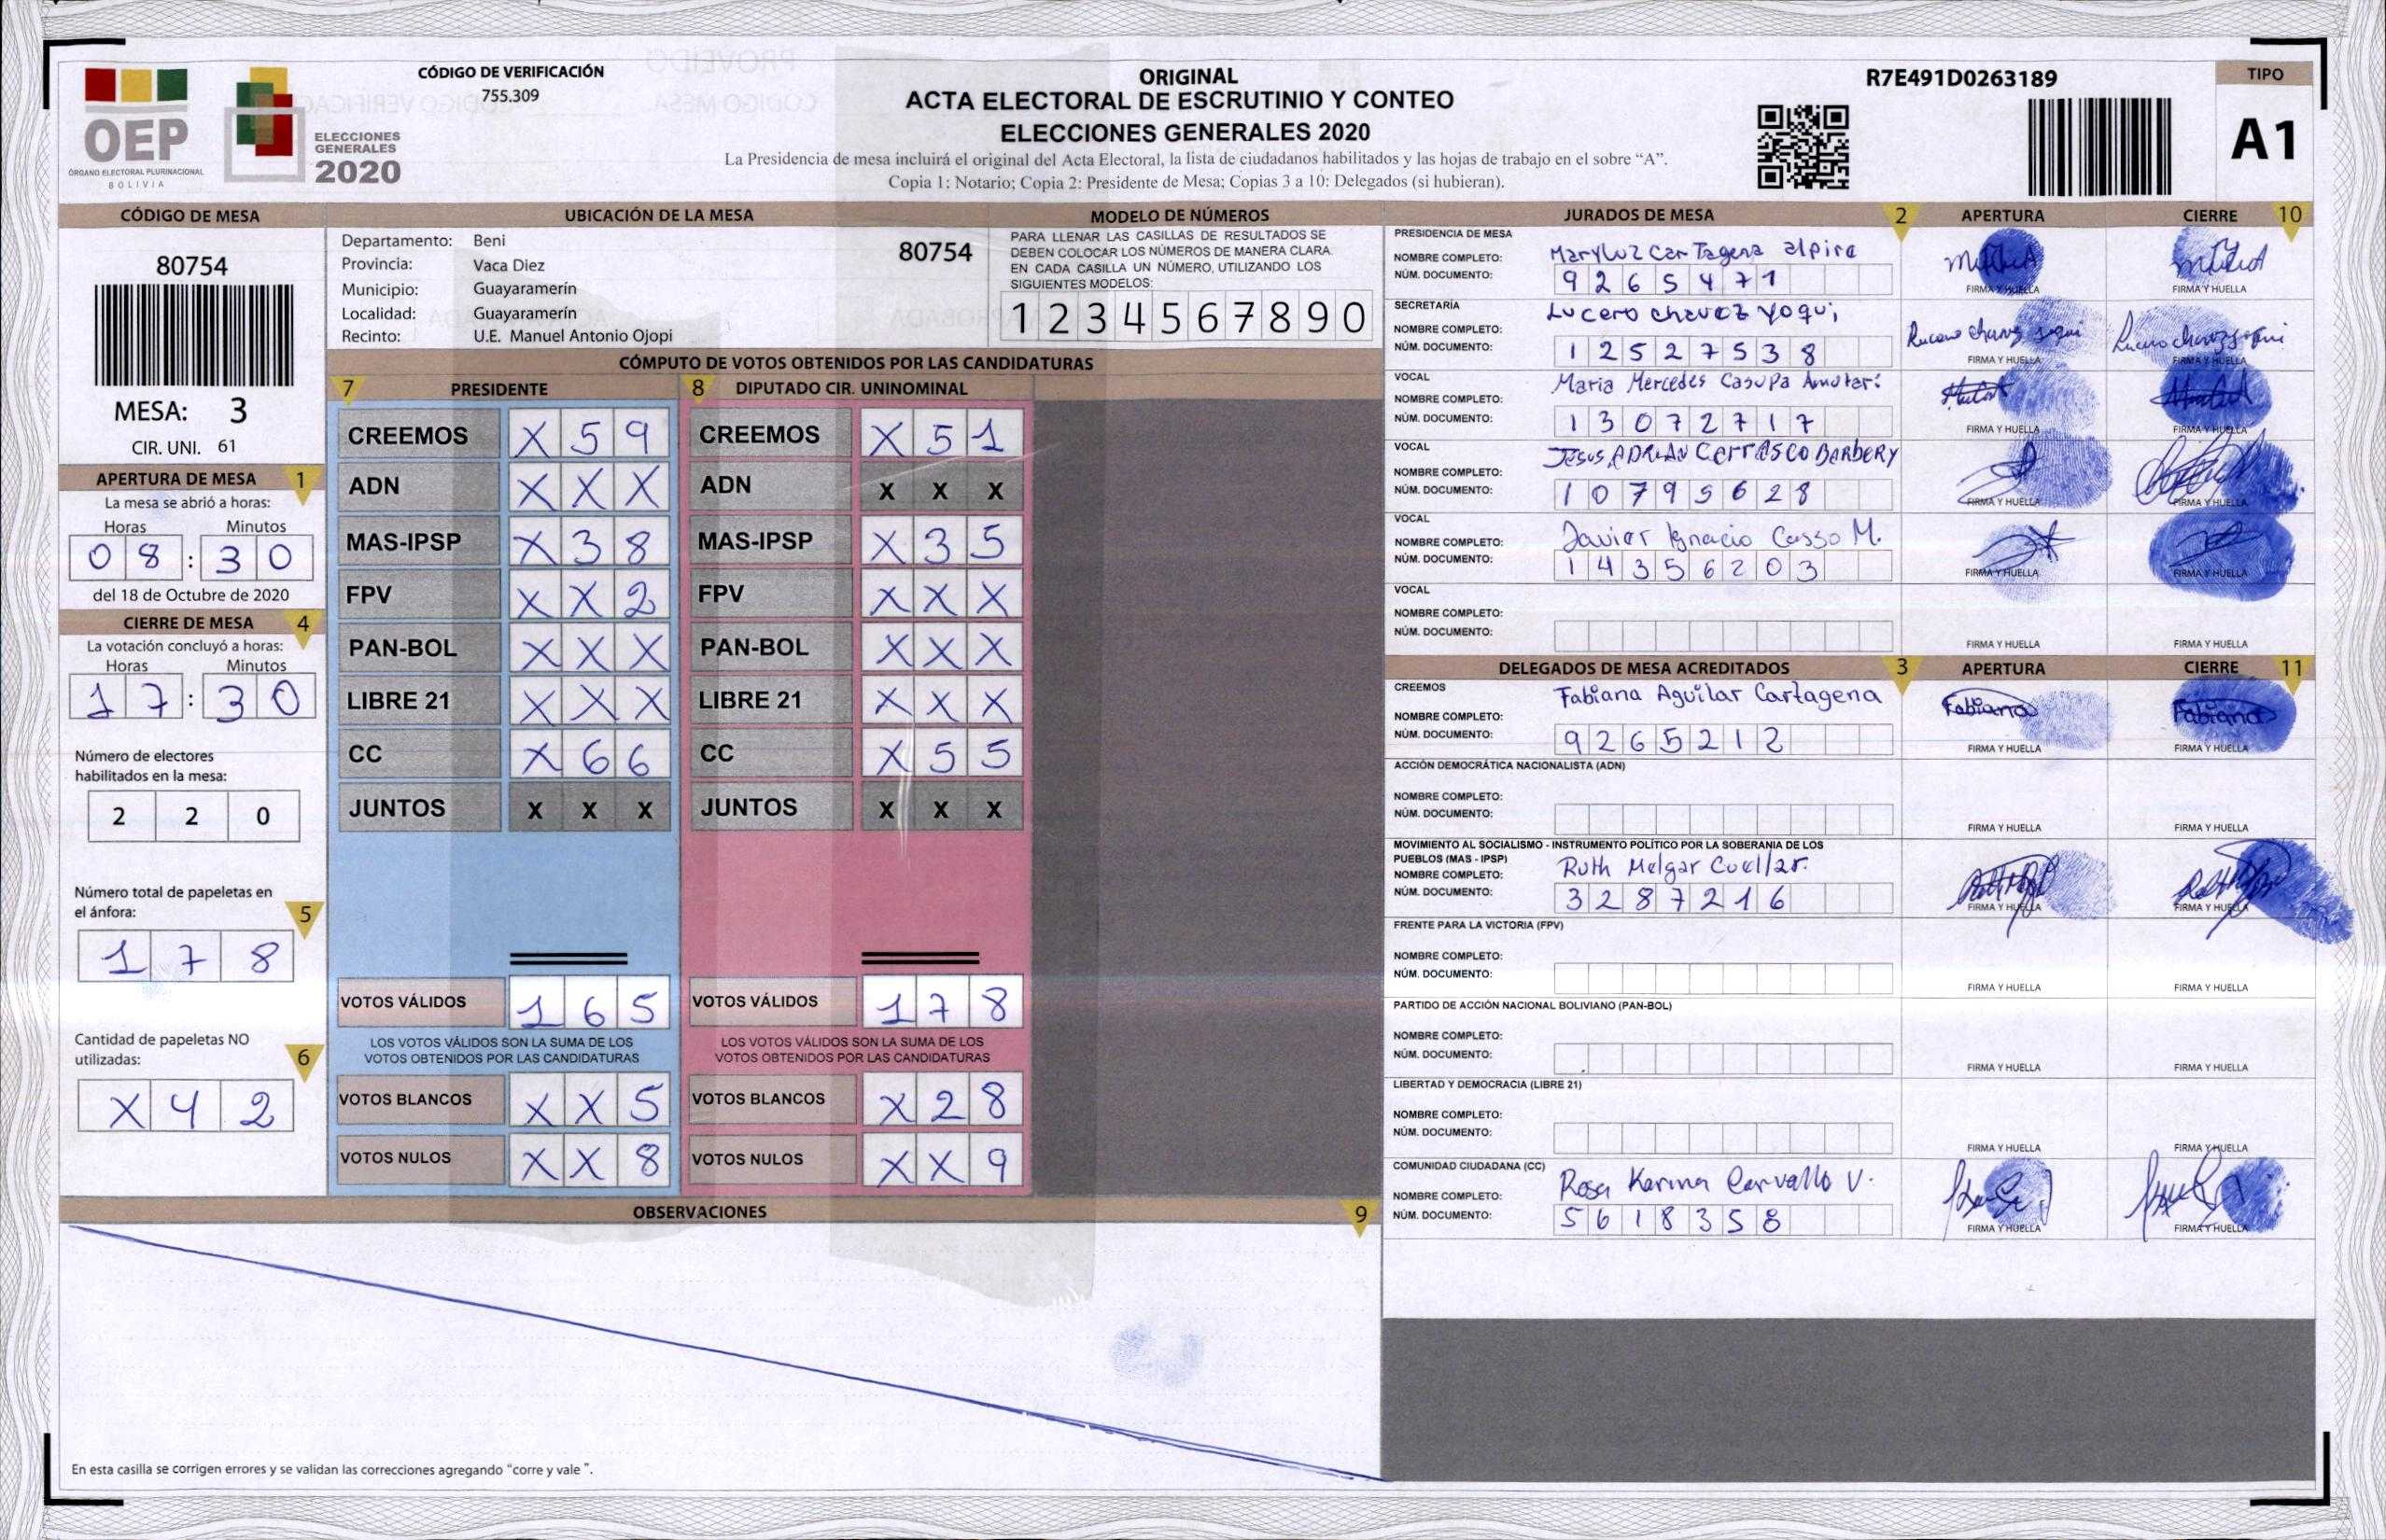 OEP
ÓRGANO ELECTORAL PLURINACIONAL
BOLIVIA
ELECCIONES
GENERALES
2020
CÓDIGO DE VERIFICACIÓN
755.309
ORIGINAL
ACTA ELECTORAL DE ESCRUTINIO Y CONTEO
ELECCIONES GENERALES 2020
La Presidencia de mesa incluirá el original del Acta Electoral, la lista de ciudadanos habilitados y las hojas de trabajo en el sobre “A”.
Copia 1: Notario; Copia 2: Presidente de Mesa; Copias 3 a 10: Delegados (si hubieran).
R7E491D0263189
TIPO
A1
CÓDIGO DE MESA
80754
MESA: 3
CIR. UNI. 61
APERTURA DE MESA 1
La mesa se abrió a horas:
Horas Minutos
0 8 : 3 0
del 18 de Octubre de 2020
CIERRE DE MESA 4
La votación concluyó a horas:
Horas Minutos
1 7 : 3 0
Número de electores
habilitados en la mesa:
2 2 0
Número total de papeletas en
el ánfora: 5
1 7 8
Cantidad de papeletas NO
utilizadas: 6
X 4 2
UBICACIÓN DE LA MESA
Departamento: Beni
80754
Provincia: Vaca Diez
Municipio: Guayaramerín
Localidad: Guayaramerín
Recinto: U.E. Manuel Antonio Ojopi
MODELO DE NÚMEROS
PARA LLENAR LAS CASILLAS DE RESULTADOS SE
DEBEN COLOCAR LOS NÚMEROS DE MANERA CLARA.
EN CADA CASILLA UN NÚMERO, UTILIZANDO LOS
SIGUIENTES MODELOS:
1 2 3 4 5 6 7 8 9 0
CÓMPUTO DE VOTOS OBTENIDOS POR LAS CANDIDATURAS
7 PRESIDENTE
CREEMOS X 5 9
ADN X X X
MAS-IPSP X 3 8
FPV X X 2
PAN-BOL X X X
LIBRE 21 X X X
CC X 6 6
JUNTOS X X X
VOTOS VÁLIDOS 1 6 5
LOS VOTOS VÁLIDOS SON LA SUMA DE LOS
VOTOS OBTENIDOS POR LAS CANDIDATURAS
VOTOS BLANCOS X X 5
VOTOS NULOS X X 8
8 DIPUTADO CIR. UNINOMINAL
CREEMOS X 5 1
ADN X X X
MAS-IPSP X 3 5
FPV X X X
PAN-BOL X X X
LIBRE 21 X X X
CC X 5 5
JUNTOS X X X
VOTOS VÁLIDOS 1 7 8
LOS VOTOS VÁLIDOS SON LA SUMA DE LOS
VOTOS OBTENIDOS POR LAS CANDIDATURAS
VOTOS BLANCOS X 2 8
VOTOS NULOS X X 9
OBSERVACIONES 9
En esta casilla se corrigen errores y se validan las correcciones agregando “corre y vale ”.
JURADOS DE MESA 2 APERTURA CIERRE 10
PRESIDENCIA DE MESA
NOMBRE COMPLETO: Maryluz Cartagena alpire
NÚM. DOCUMENTO: 9 2 6 5 4 7 1
FIRMA Y HUELLA FIRMA Y HUELLA
SECRETARÍA
NOMBRE COMPLETO: Lucero chavez yoqui
NÚM. DOCUMENTO: 1 2 5 2 7 5 3 8
FIRMA Y HUELLA FIRMA Y HUELLA
VOCAL
NOMBRE COMPLETO: Maria Mercedes Casupa Amutari
NÚM. DOCUMENTO: 1 3 0 7 2 7 1 7
FIRMA Y HUELLA FIRMA Y HUELLA
VOCAL
NOMBRE COMPLETO: Jesus ADRIAN CarrASCO BARBERY
NÚM. DOCUMENTO: 1 0 7 9 5 6 2 8
FIRMA Y HUELLA FIRMA Y HUELLA
VOCAL
NOMBRE COMPLETO: Javier Ignacio Casso M.
NÚM. DOCUMENTO: 1 4 3 5 6 2 0 3
FIRMA Y HUELLA FIRMA Y HUELLA
VOCAL
NOMBRE COMPLETO:
NÚM. DOCUMENTO:
FIRMA Y HUELLA FIRMA Y HUELLA
DELEGADOS DE MESA ACREDITADOS 3 APERTURA CIERRE 11
CREEMOS
NOMBRE COMPLETO: Fabiana Aguilar Cartagena
Fabiana Fabiana
NÚM. DOCUMENTO: 9 2 6 5 2 1 2
FIRMA Y HUELLA FIRMA Y HUELLA
ACCIÓN DEMOCRÁTICA NACIONALISTA (ADN)
NOMBRE COMPLETO:
NÚM. DOCUMENTO:
FIRMA Y HUELLA FIRMA Y HUELLA
MOVIMIENTO AL SOCIALISMO - INSTRUMENTO POLÍTICO POR LA SOBERANIA DE LOS
PUEBLOS (MAS - IPSP)
NOMBRE COMPLETO: Ruth Melgar Cuellar.
NÚM. DOCUMENTO: 3 2 8 7 2 1 6
FIRMA Y HUELLA FIRMA Y HUELLA
FRENTE PARA LA VICTORIA (FPV)
NOMBRE COMPLETO:
NÚM. DOCUMENTO:
FIRMA Y HUELLA FIRMA Y HUELLA
PARTIDO DE ACCIÓN NACIONAL BOLIVIANO (PAN-BOL)
NOMBRE COMPLETO:
NÚM. DOCUMENTO:
FIRMA Y HUELLA FIRMA Y HUELLA
LIBERTAD Y DEMOCRACIA (LIBRE 21)
NOMBRE COMPLETO:
NÚM. DOCUMENTO:
FIRMA Y HUELLA FIRMA Y HUELLA
COMUNIDAD CIUDADANA (CC)
NOMBRE COMPLETO: Rosa Karina Carvallo V.
NÚM. DOCUMENTO: 5 6 1 8 3 5 8
FIRMA Y HUELLA FIRMA Y HUELLA